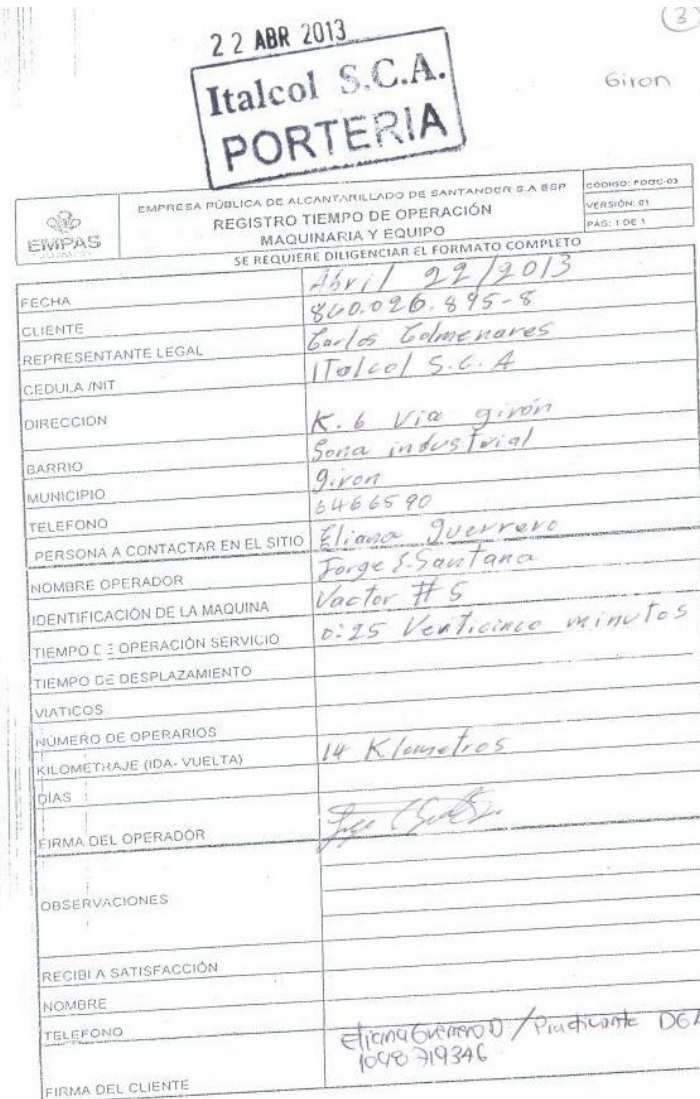 3
22 ABR 2013
Italcol S.C.A.
PORTERIA
Giron
EMPAS
EMPRESA PÚBLICA DE ALCANTARILLADO DE SANTANDER S.A ESP
REGISTRO TIEMPO DE OPERACIÓN
MAQUINARIA Y EQUIPO
CÓDIGO: FOGC-03
VERSIÓN: 01
PÁG: 1 DE 1
SE REQUIERE DILIGENCIAR EL FORMATO COMPLETO
FECHA Abril 22/2013
CLIENTE 860.026.895-8
REPRESENTANTE LEGAL Carlos Colmenares
CEDULA /NIT ITalcol S.C.A
DIRECCION K.6 Via girón
BARRIO Sona industrial
MUNICIPIO Giron
TELEFONO 6466590
PERSONA A CONTACTAR EN EL SITIO Eliana guerrero
NOMBRE OPERADOR Jorge E. Santana
IDENTIFICACIÓN DE LA MAQUINA Vactor #5
TIEMPO DE OPERACIÓN SERVICIO 0:25 Venticinco minutos
TIEMPO DE DESPLAZAMIENTO
VIATICOS
NÚMERO DE OPERARIOS
KILOMETRAJE (IDA- VUELTA) 14 Klometros
DÍAS
FIRMA DEL OPERADOR
OBSERVACIONES
RECIBI A SATISFACCIÓN
NOMBRE
TELEFONO
Eliana Guerrero D / Practicante DGA
1098719346
FIRMA DEL CLIENTE